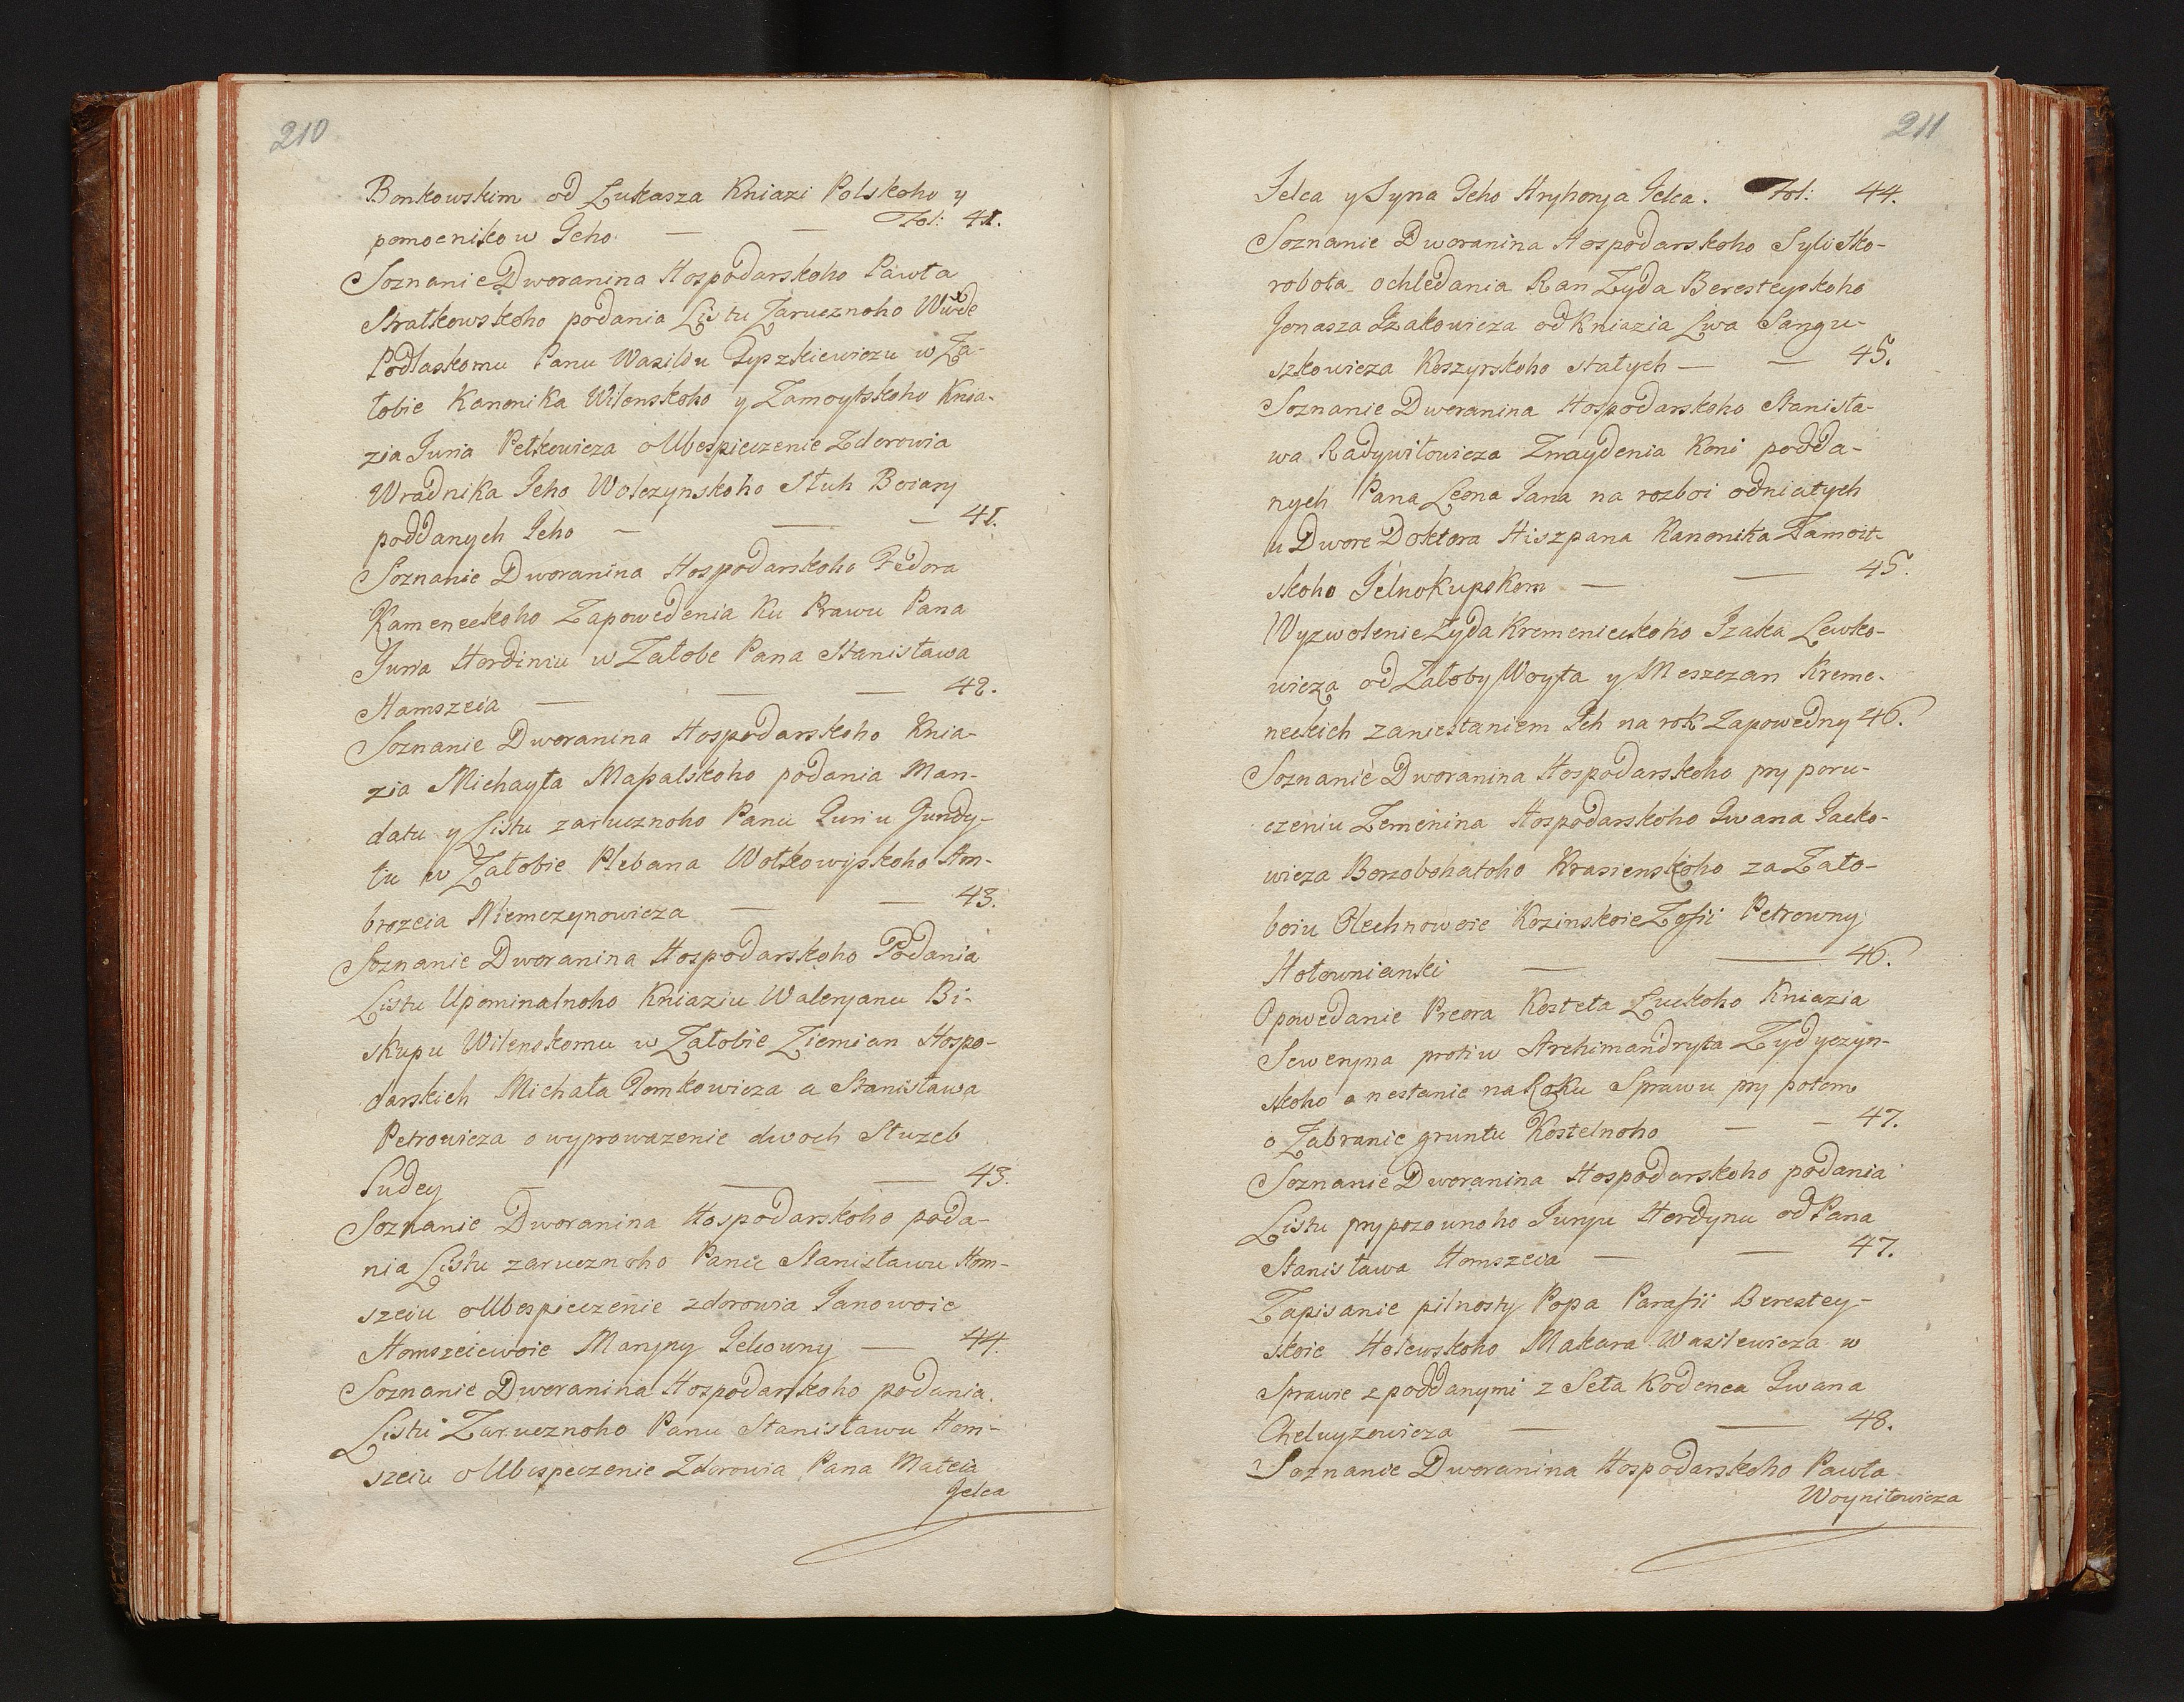 210
Bonkowskim od Lukasza Kniazi Polskoho y
pomocnikow Jeho — — Fol: 41.
Soznanie Dworanina Hospodarskoho Pawła
Stratkowskoho podania Listu Zarucznoho Wwde
Podlaskomu Panu Wasilu Tyszkiewiczu w Za-
łobie Kanonika Wilenskoho y Zamoytskoho Knia-
zia Juria Petkowicza o Ubespieczenie Zdorowia
Wradnika Jeho Wolczynskoho Słuh Boiary
poddanych Jeho — — — 41.
Soznanie Dworanina Hospodarskoho Fedora
Kameneckoho Zapowedenia Ku Prawu Pana
Juria Hordiniu w Załobe Pana Stanisława
Hamszeia — — — 42.
Soznanie Dworanina Hospodarskoho Knia-
zia Michayła Masalskoho podania Man-
datu y Listu zarucznoho Panu Juriu Jundy-
łu w Załobie Plebana Wołkowyskoho Am-
brozeia Niemczynowicza — — 43.
Soznanie Dworanina Hospodarskoho Podania
Listu Upominalnoho Kniaziu Waleryanu Bi-
skupu Wilenskomu w Załobie Ziemian Hospo-
darskich Michała Tomkowicza a Stanisława
Petrowicza o wyprowazenie dwoch Służeb
Ludey — — — 43.
Soznanie Dworanina Hospodarskoho poda-
nia Listu zarucznoho Panu Stanisławu Hom-
szeiu o Ubespieczenie zdorowia Janowoie
Homszeiewoie Maryny Jelcowny — 44.
Soznanie Dworanina Hospodarskoho podania
Listu Zarucznoho Panu Stanisławu Hom-
szeiu o Ubespeczenie Zdorowia Pana Mateia
Jelca
211
Jelca y Syna Jeho Hryhorya Jelca. Fol: 44.
Soznanie Dworanina Hospodarskoho Syli Sko-
robota ochledania Ran Żyda Beresteyskoho
Jonasza Izakowicza od Kniazia Lwa Sangu-
szkowicza Koszyrskoho stałych — — 45.
Soznanie Dworanina Hospodarskoho Stanisła-
wa Radywiłowicza Znaydenia Koni podda-
nych Pana Leona Jana na rozboi odniatych
u Dwore Doktora Hiszpana Kanonika Zamoit-
skoho Jelnokupskom — — 45.
Wyzwolenie Żyda Kremenieckoho Izaka Lewko-
wicza od Załoby Woyta y Meszczan Kreme-
neckich zaniestaniem Ich na rok Zapowedny 46.
Soznanie Dworanina Hospodarskoho pry poru-
czeniu Zemenina Hospodarskoho Iwana Jacko-
wicza Borzobohatoho Krasienskoho za Zało-
boiu Olechnowoie Kozinskoie Zofii Petrowny
Hołownianki — — 46.
Opowedanie Preora Kosteła Luckoho Kniazia
Seweryna protiw Archimandryta Żydyczyn-
skoho o nestanie na Roku Sprawu pry potom
o Zabranie gruntu Kostelnoho — — 47.
Soznanie Dworanina Hospodarskoho podania
Listu prypozownoho Juryu Hordynu od Pana
Stanisława Homszeia — — 47.
Zapisanie pilnosty Popa Parafii Berestey-
skoie Helewskoho Makara Wasilewicza w
Sprawie z poddanymi z Seła Kodenca Iwana
Cheluyzowicza — — 48.
Soznanie Dworanina Hospodarskoho Pawła
Woyniłowicza